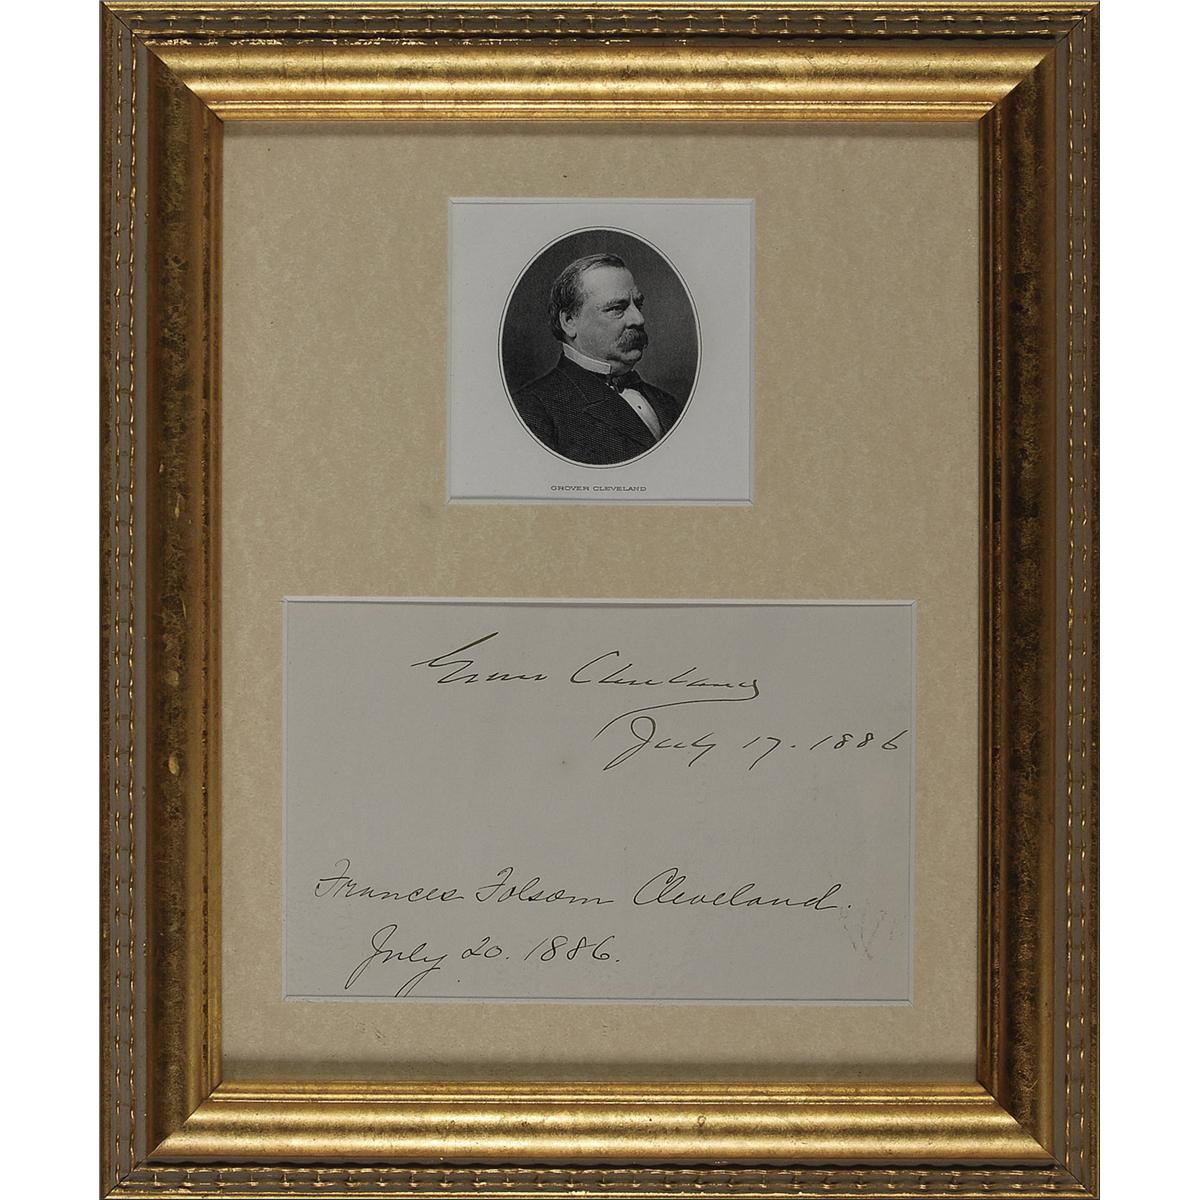 GROVER CLEVELAND
Grover Cleveland
July 17. 1886
Frances Folsom Cleveland.
July 20. 1886.